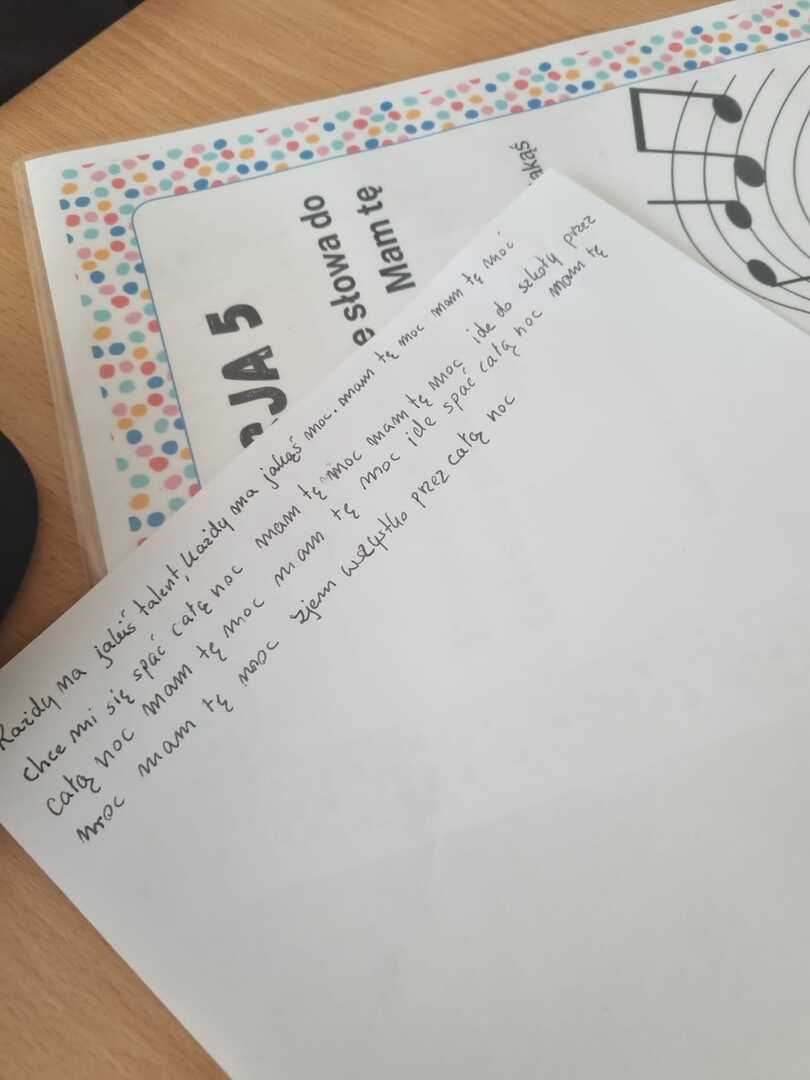 JA 5
słowa do
Mam tę
akąś
Każdy ma jakiś talent, każdy ma jakąś moc. mam tę moc mam tę moć
chce mi się spać całą noc mam tę moc mam tę moc ide do szkoły przez
całą noc mam tę moc mam tę moc ide spać całą noc mam tę
moc mam tę moc zjem wszystko przez całą noc